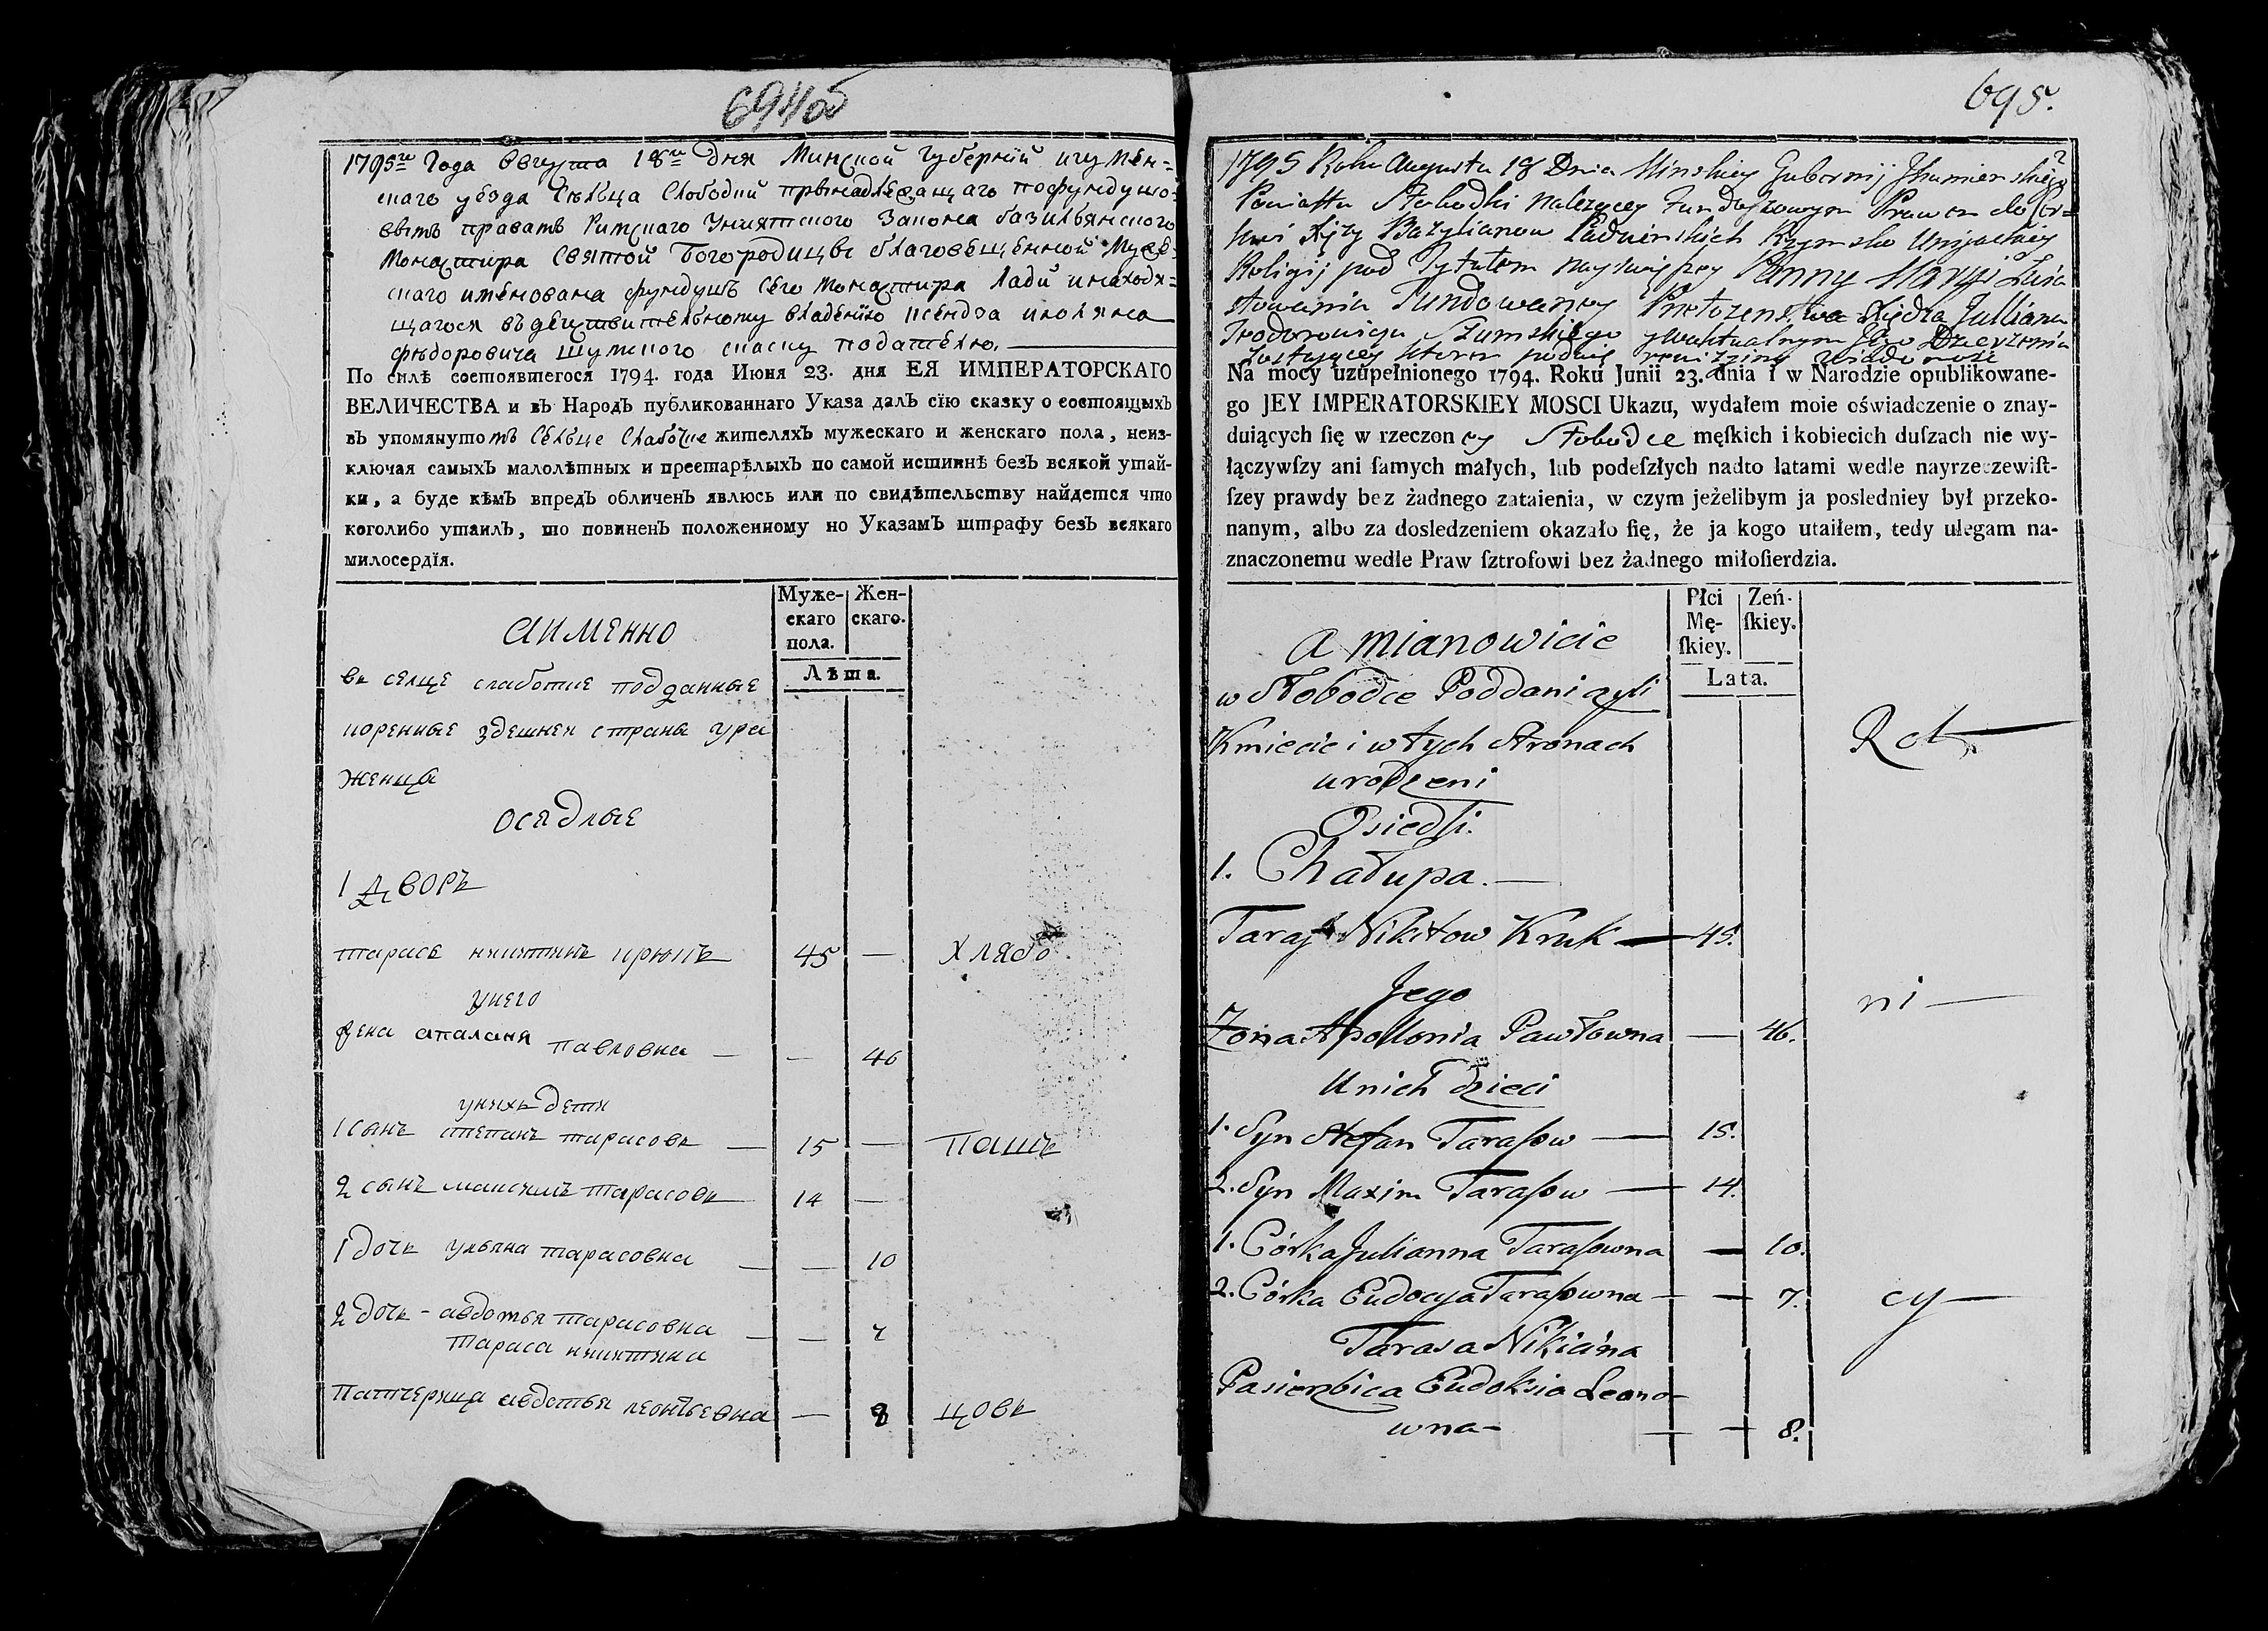 694об
1795го Года Августа 18го дня Минской Губернїи игумен=
скаго уезда Селца Слободки принадлежащаго по фундушо=
вымъ правамъ Римскаго Униятского Закона базильянского
Монастира Святой Богородици благовещенной Муже=
скаго именована фундушъ сего Монастира Лади и находя=
щагося въ действителному владению ксендза июлiяна
федоровича Шумского списку подателю.
По силѣ состоявшегося 1794. года Июня 23. дня ЕЯ ИМПЕРАТОРСКАГО
ВЕЛИЧЕСТВА и въ Народъ публикованнаго Указа далъ сїю сказку о состоящыхъ
въ упомянутомъ Селце Слабоцке жителяхъ мужескаго и женскаго пола, неиз-
ключая самыхъ малолѣтныхъ и престарѣлыхъ по самой истиннѣ безъ всякой утай-
ки, а буде кѣмъ впредъ обличенъ явлюсь или по свидѣтельству найдется что
коголибо утаилъ, то повиненъ положенному по Указамъ штрафу безъ всякаго
милосердїя.
аименно
Муже-
скаго
пола.
Жен-
скаго.
Лѣта.
въ селце слаботке подданные
коренные здешнея страны уро
женца
оседлые
1 дворъ
тарасъ никитинъ крюкъ 45 — Хлябо
унего
жена апаланя павловна — — 46
унихъ дети
1 сынъ степанъ тарасовъ — 15 — пашъ
2 сынъ максимъ тарасовъ — 14 —
1 дочь ульяна тарасовна — — 10
2 дочь - авдотья тарасовна — — 7
тараса никитина
патчерица авдотья леонтьевна — 8 цовъ
695.
1795 Roku Augusta 18 Dnia Minskiey Gubernij Ihumenskiego
Powiattu Słobodki należącey Fundoszowym Prawem do Cer=
kwi Xięży Bazylianow Ladzieńskich Rzymsko Unijackiey
Religij pod Tytułem nayświętszey Panny Maryi Zwia
stowania Fundowaney Przełożenstwa Xiędza Julliana
Teodorowicza Szumskiego
Na mocy uzupełnionego 1794. Roku Junii 23. dnia i w Narodzie opublikowane-
go JEY IMPERATORSKIEY MOSCI Ukazu, wydałem moie oświadczenie o znay-
duiących ſię w rzeczoney Słobodce męſkich i kobiecich duſzach nie wy-
łączywſzy ani ſamych małych, lub podeſzłych nadto latami wedle nayrzeczewiſt-
ſzey prawdy bez żadnego zataienia, w czym jeżelibym ja posledniey był przeko-
nanym, albo za dosledzeniem okazało ſię, że ja kogo utaiłem, tedy ulegam na-
znaczonemu wedle Praw ſztrofowi bez żadnego miłoſierdzia.
a mianowicie
Płci
Mę-
ſkiey.
Zeń-
ſkiey.
Lata.
w Słobodce Poddani czyli
Kmiecie i w tych Stronach
urodzeni
Osiedli.
1. Chałupa. —
Taras Nikitow Kruk — 45.
Jego
Zona Apollonia Pawłowna — 46.
U nich dzieci
1. Syn Stefan Taraſow — 15.
2. Syn Maxim Taraſow — 14.
1. Córka Julianna Taraſowna — 10.
2. Córka Eudocya Taraſowna — — 7.
Tarasa Nikicina
Pasierzbica Eudoksia Leono-
wna- — — 8.
Rol
ni —
cy —